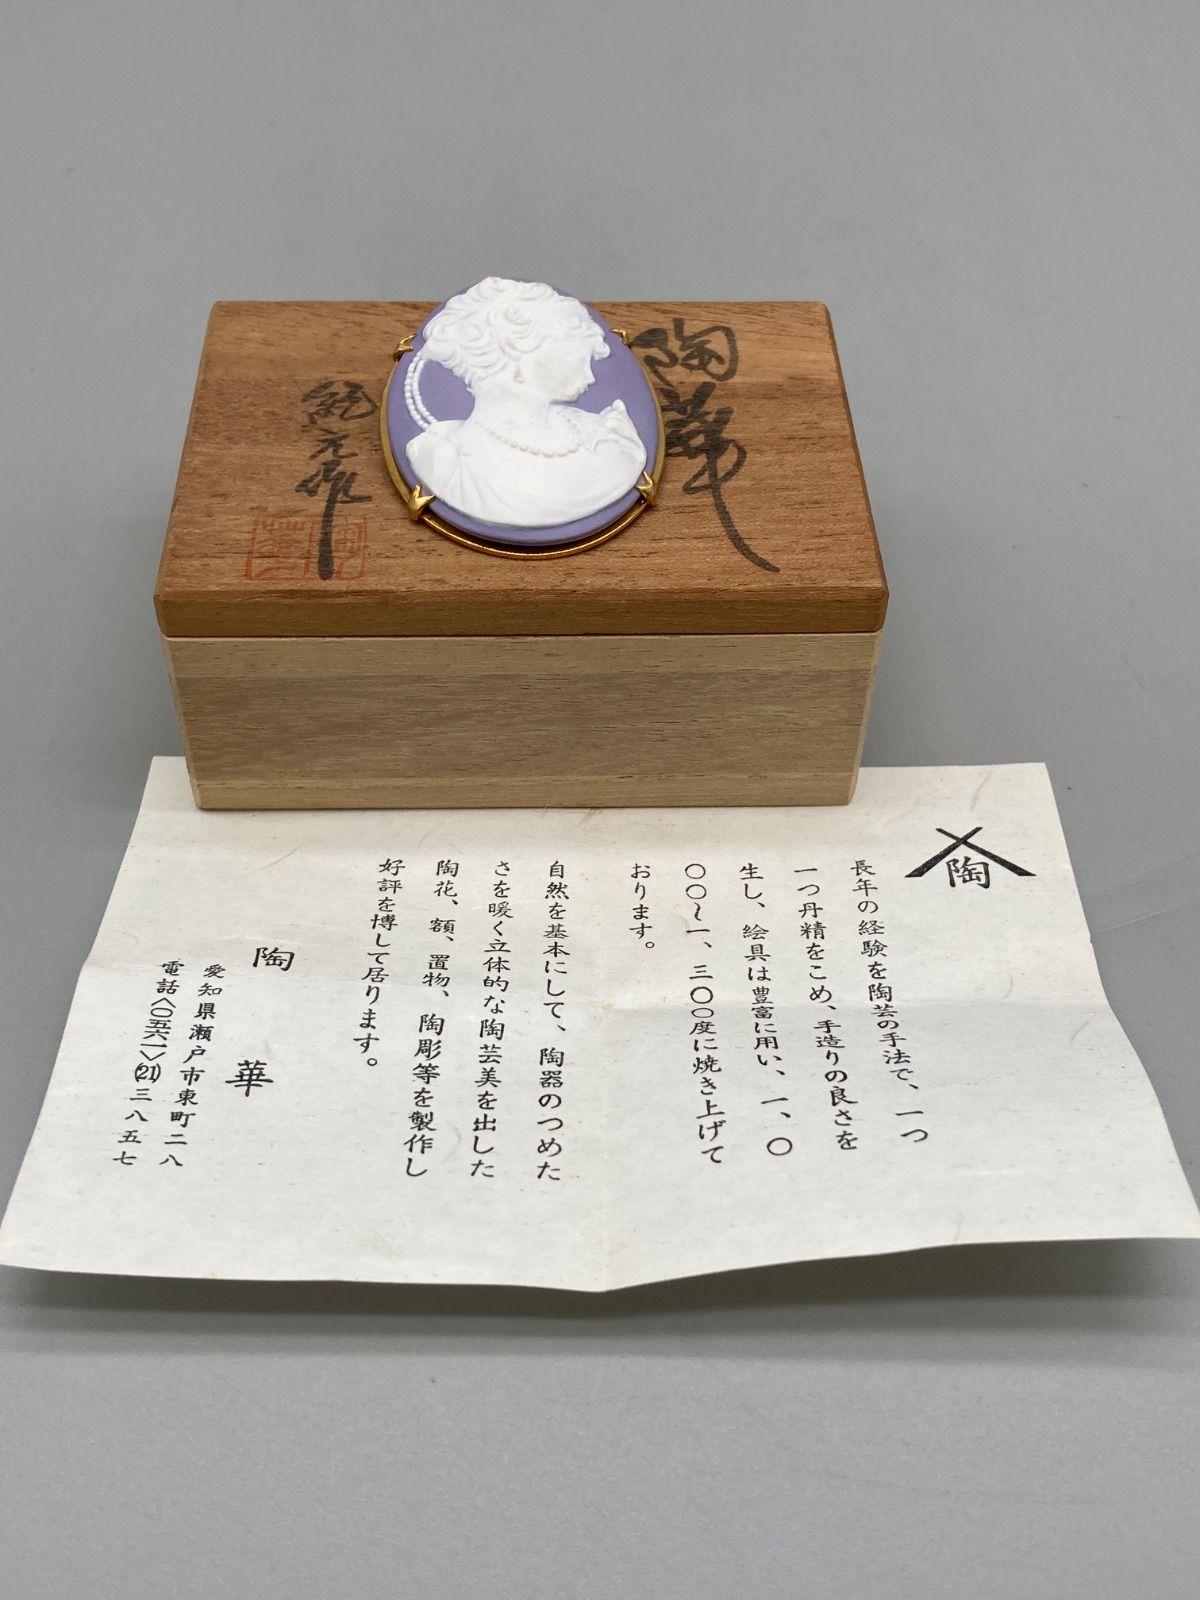 陶華
紀元作
陶
長年の経験を陶芸の手法で、一つ
一つ丹精をこめ、手造りの良さを
生し、絵具は豊富に用い、一、〇
〇〇〜一、三〇〇度に焼き上げて
おります。
自然を基本にして、陶器のつめた
さを暖く立体的な陶芸美を出した
陶花、額、置物、陶彫等を製作し
好評を博して居ります。
陶華
愛知県瀬戸市東町二八
電話〈〇五六一〉(21)三八五七